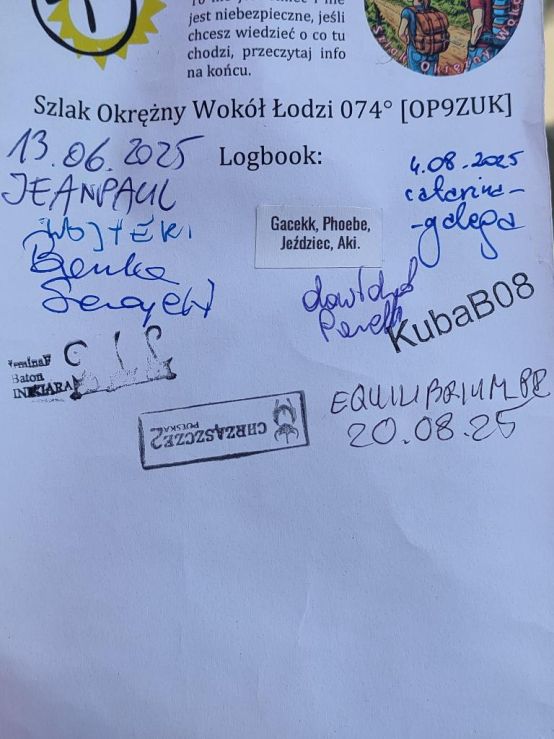 jest niebezpieczne, jeśli
chcesz wiedzieć o co tu
chodzi, przeczytaj info
na końcu.
Szlak Okrężny Wokół
Szlak Okrężny Wokół Łodzi 074° [OP9ZUK]
Logbook:
13.06.2025
JEANPAUL
WOJTEKI
Benka
4.08.2025
catarina-
-galega
Gacekk, Phoebe,
Jeździec, Aki.
KubaB08
Baton
INKIARA
CHRZĄSZCZE2
POLSKA
EQUILIBRIUM_BB
20.08.25